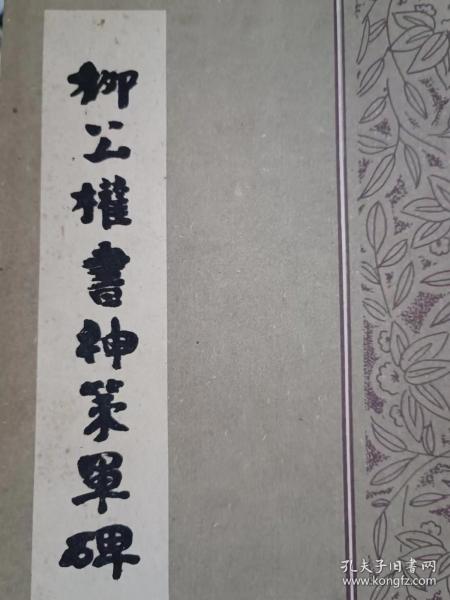 柳公權書神策軍碑
孔夫子旧书网
www.kongfz.com